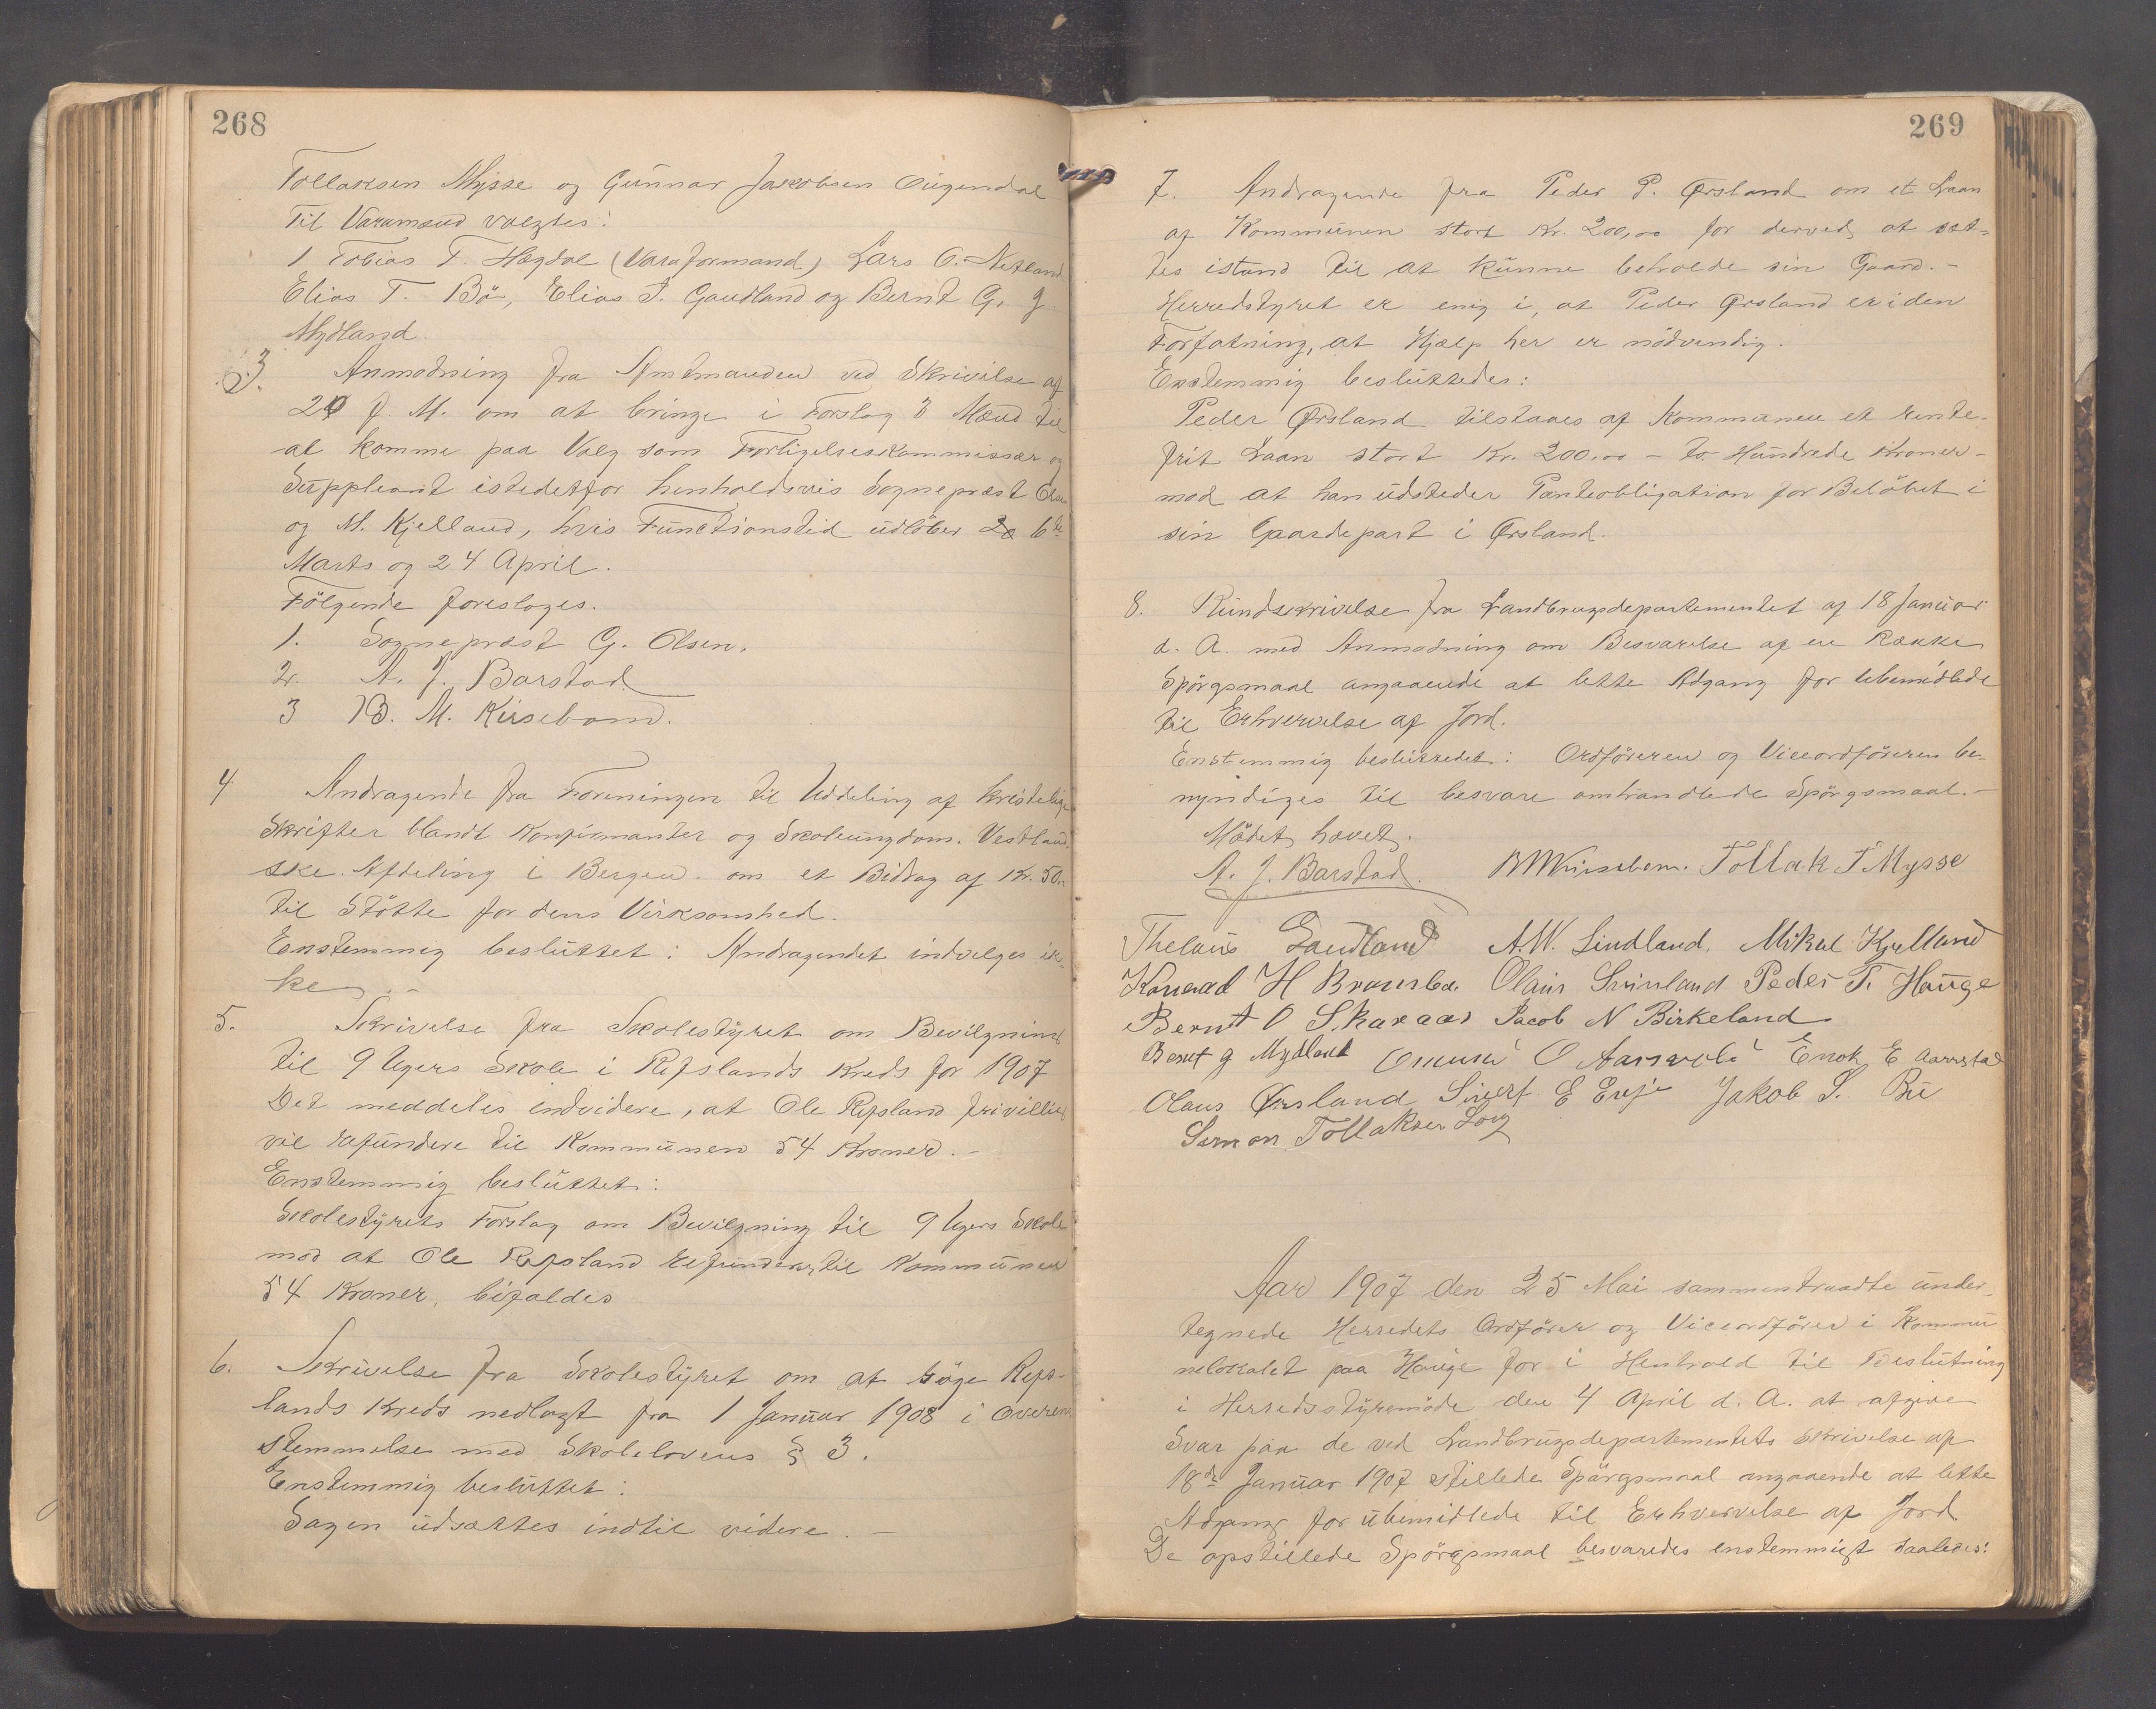 268
Tollaksen Mysse og Gunnar Jakobsen Eigendal
Til Varamænd valgtes:
1 Tobias T. Hægdal (Varaformand) Lars O. Netland
Elias T. Bö, Elias S. Gaudland og Bernt G.
Mydland.
3. Anmodning fra Amtmanden ved Skrivelse af
20 f. M. om at bringe i Forslag 3 Mænd til
at komme paa Valg som Forligelseskommissær og
Suppleant istedetfor henholdsvis Sogneprest Olsen
og M. Kjelland, hvis Functionstid udlöber 6te
Marts og 24 April.
Fölgende foresloges.
1. Sognepræst G. Olsen.
2. A. J. Barstad
3 B. M. Kirsebom.
4 Andragende fra Foreningen til Uddeling af kristelige
Skrifter blandt Konfirmanter og Skoleungdom. Vestland
ske Afdeling i Bergen. om et Bidrag af Kr. 50.
til Stötte for dens Virksomhed.
Enstemmig besluttet: Andragendet indvilges ik-
ke.-
5. Skrivelse fra Skolestyret om Bevilgning
til 9 Ugers Skole i Refslands Kreds for 1907
Det meddeles endvidere, at Ole Refsland frivillig
vil refundere til Kommunen 54 Kroner.-
Enstemmig besluttet:
Skolestyrets Forslag om Bevilgning til 9 Ugers Skole
mod at Ole Refsland refunderer til Kommunen
54 Kroner, bifaldes
6. Skrivelse fra Skolestyret om at söge Refs-
lands Kreds nedlagt fra 1 Januar 1908 i Overen
stemmelse med Skolelovens § 3.
Enstemmig besluttet:
Sagen udsættes indtil videre.-
269
7. Andragende fra Peder P. Ørsland om et Laan
af Kommunen stort Kr. 200,00 for derved at sæt-
tes istand til at kunne beholde sin Gaard.-
Herredstyret er enig i, at Peder Ørsland er i den
Forfatning, at Hjælp her er nödvendig.
Enstemmig besluttedes:
Peder Ørsland tilstaaes af Kommunen et rente-
frit Laan stort Kr. 200.00 - to Hundrede Kroner -
mod at han udsteder Panteobligation for Belöbet i
sin Gaardepart i Ørsland.
8. Rundskrivelse fra Landbrugsdepartementet af 18 Januar
d. A. med Anmodning om Besvarelse af en Række
Spörgsmaal angaaende at lette Adgang for ubemidlede
til Erhvervelse af Jord.
Enstemmig besluttedes: Ordföreren og Viceordföreren be-
myndiges til besvare omhandlede Spörgsmaal.-
Mödet hævet.
A. J. Barstad. BMKirsebom. Tollak T Mysse
Thelaus Gaudland A.W. Lindland. Mikal Kjelland
Konrad H Brousbø. Olaus Svinland Peder T. Hauge
Bernt O Skaraas Jacob N Birkeland
Bernt G Mydland Omund O Aarrvold Enok E Aarrestad
Olaus Ørsland Sivert E Erije Jakob S. Bu
Simon Tollaksen Log
Aar 1907 den 25 Mai sammentraadte under-
tegnede Herredets Ordförer og Viceordförer i Kommu
nelokalet paa Hauge for i Henhold til Beslutning
i Herredsstyremöde den 4 April d. A. at afgive
Svar paa de ved Landbrugsdepartementets Skrivelse af
18de Januar 1907 stillede Spörgsmaal angaaende at lette
Adgang for ubemidlede til Erhvervelse af Jord.
De opstillede Spörgsmaal besvaredes enstemmigt saaledes: